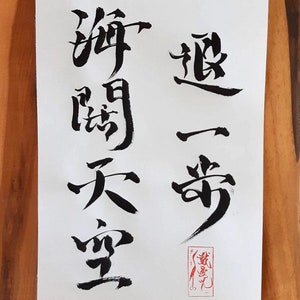 退一步
海闊天空